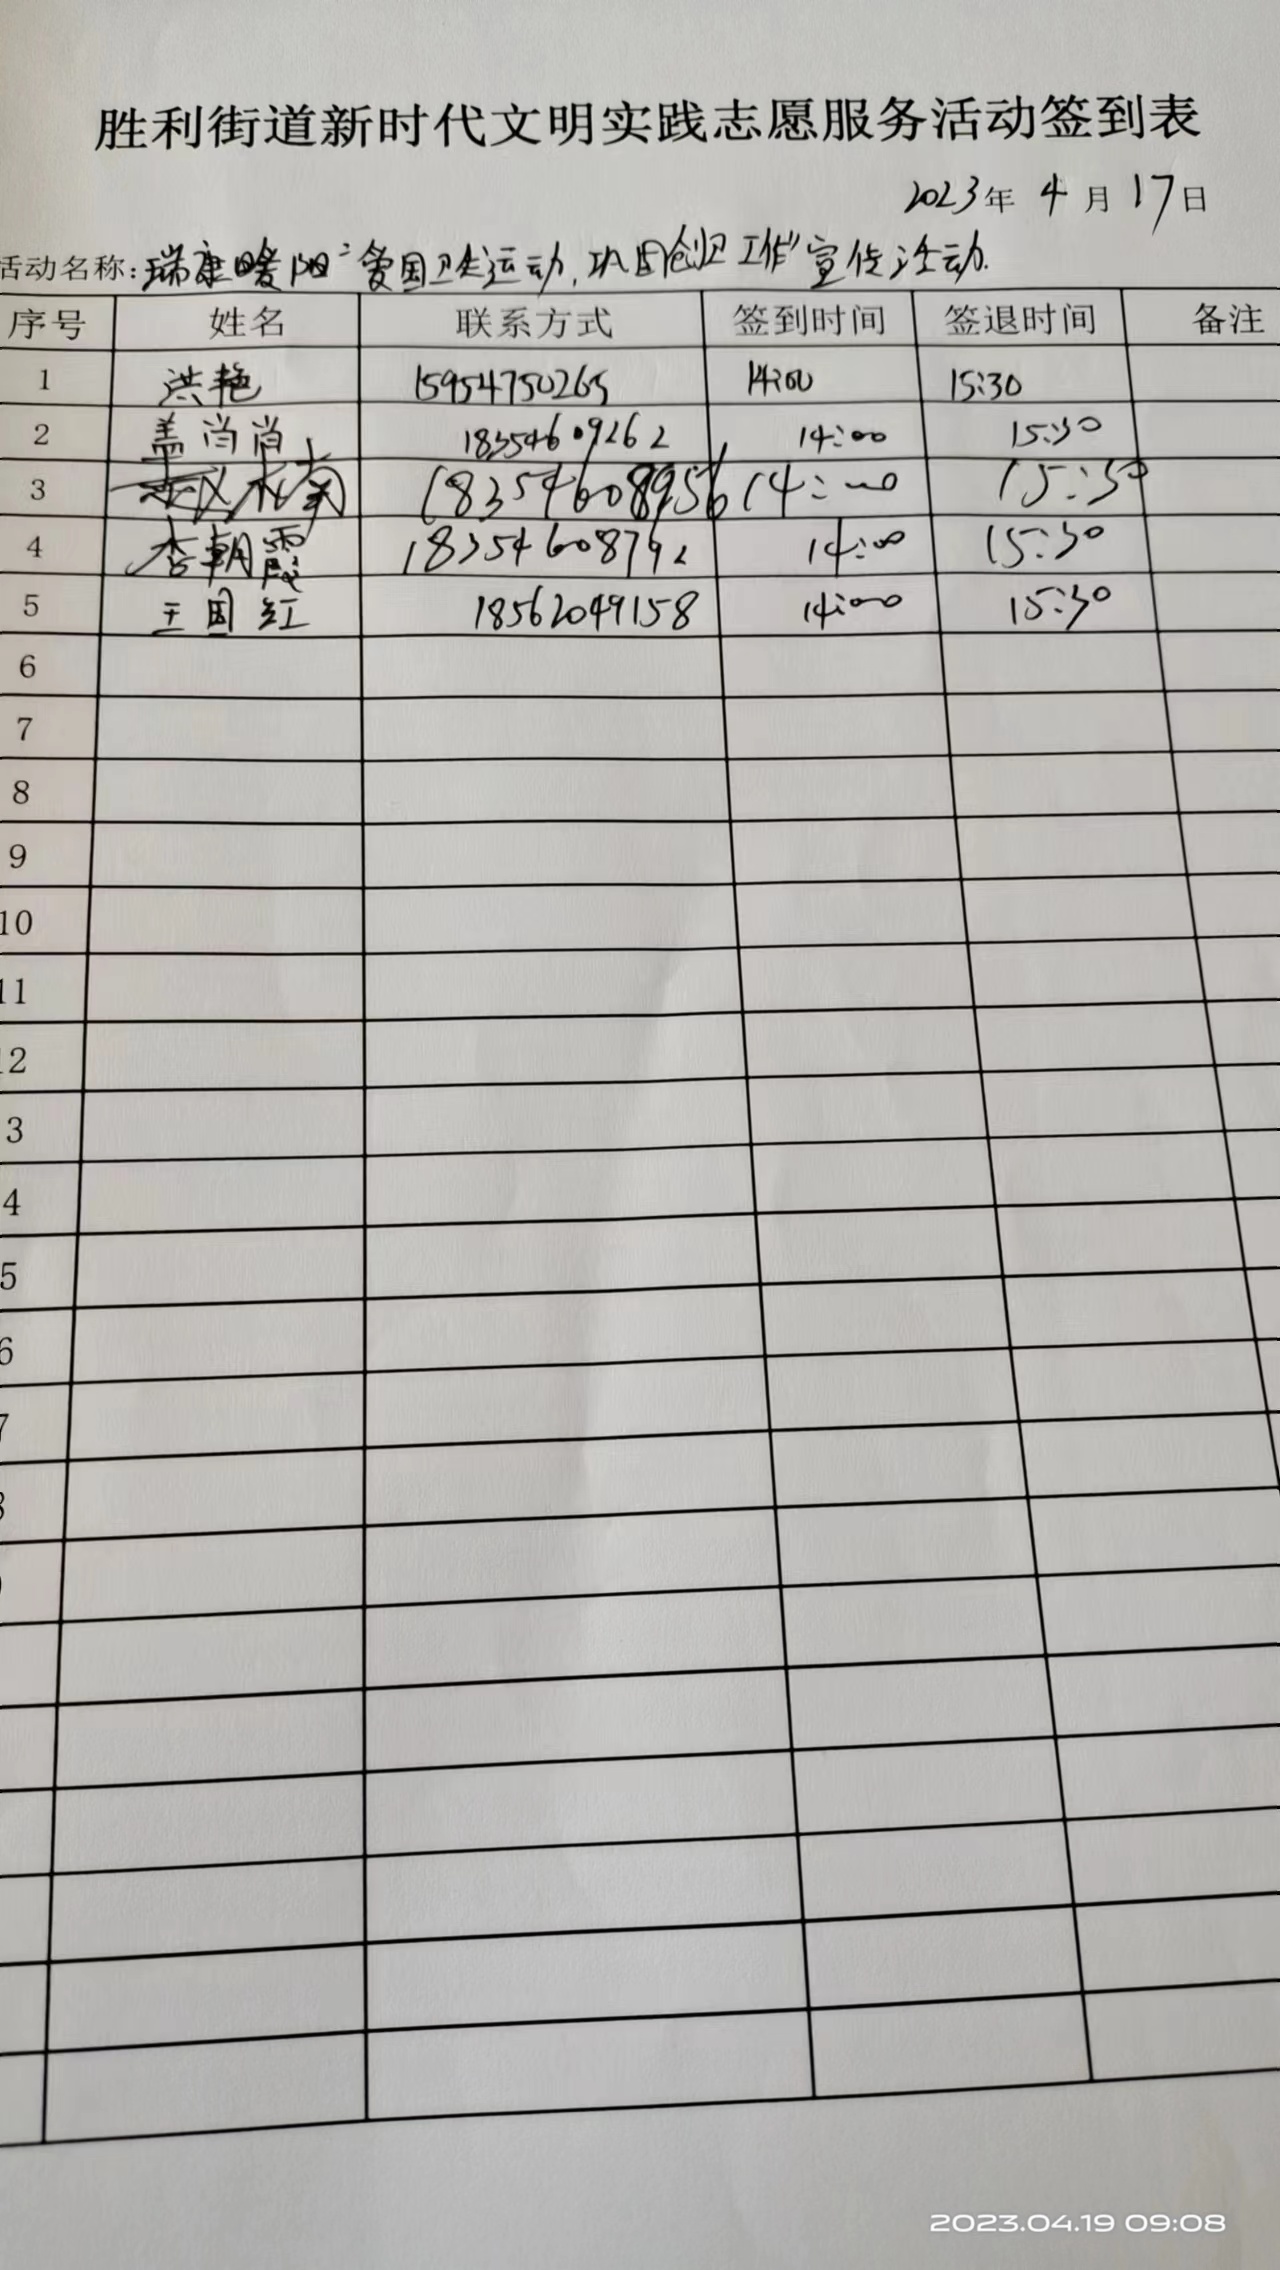 胜利街道新时代文明实践志愿服务活动签到表
2023年 4月 17日
活动名称:瑞康暖阳“爱国卫生运动,巩固创卫工作”宣传活动.
序号 姓名 联系方式 签到时间 签退时间 备注
1 洪艳 15954750265 14:00 15:30
2 盖肖肖 18354609262 14:00 15:30
3 18354608956 14:00 15:30
4 李朝霞 18354608792 14:00 15:30
5 王国红 18562049158 14:00 15:30
6
7
8
9
10
11
12
3
4
5
6
7
8
2023.04.19 09:08